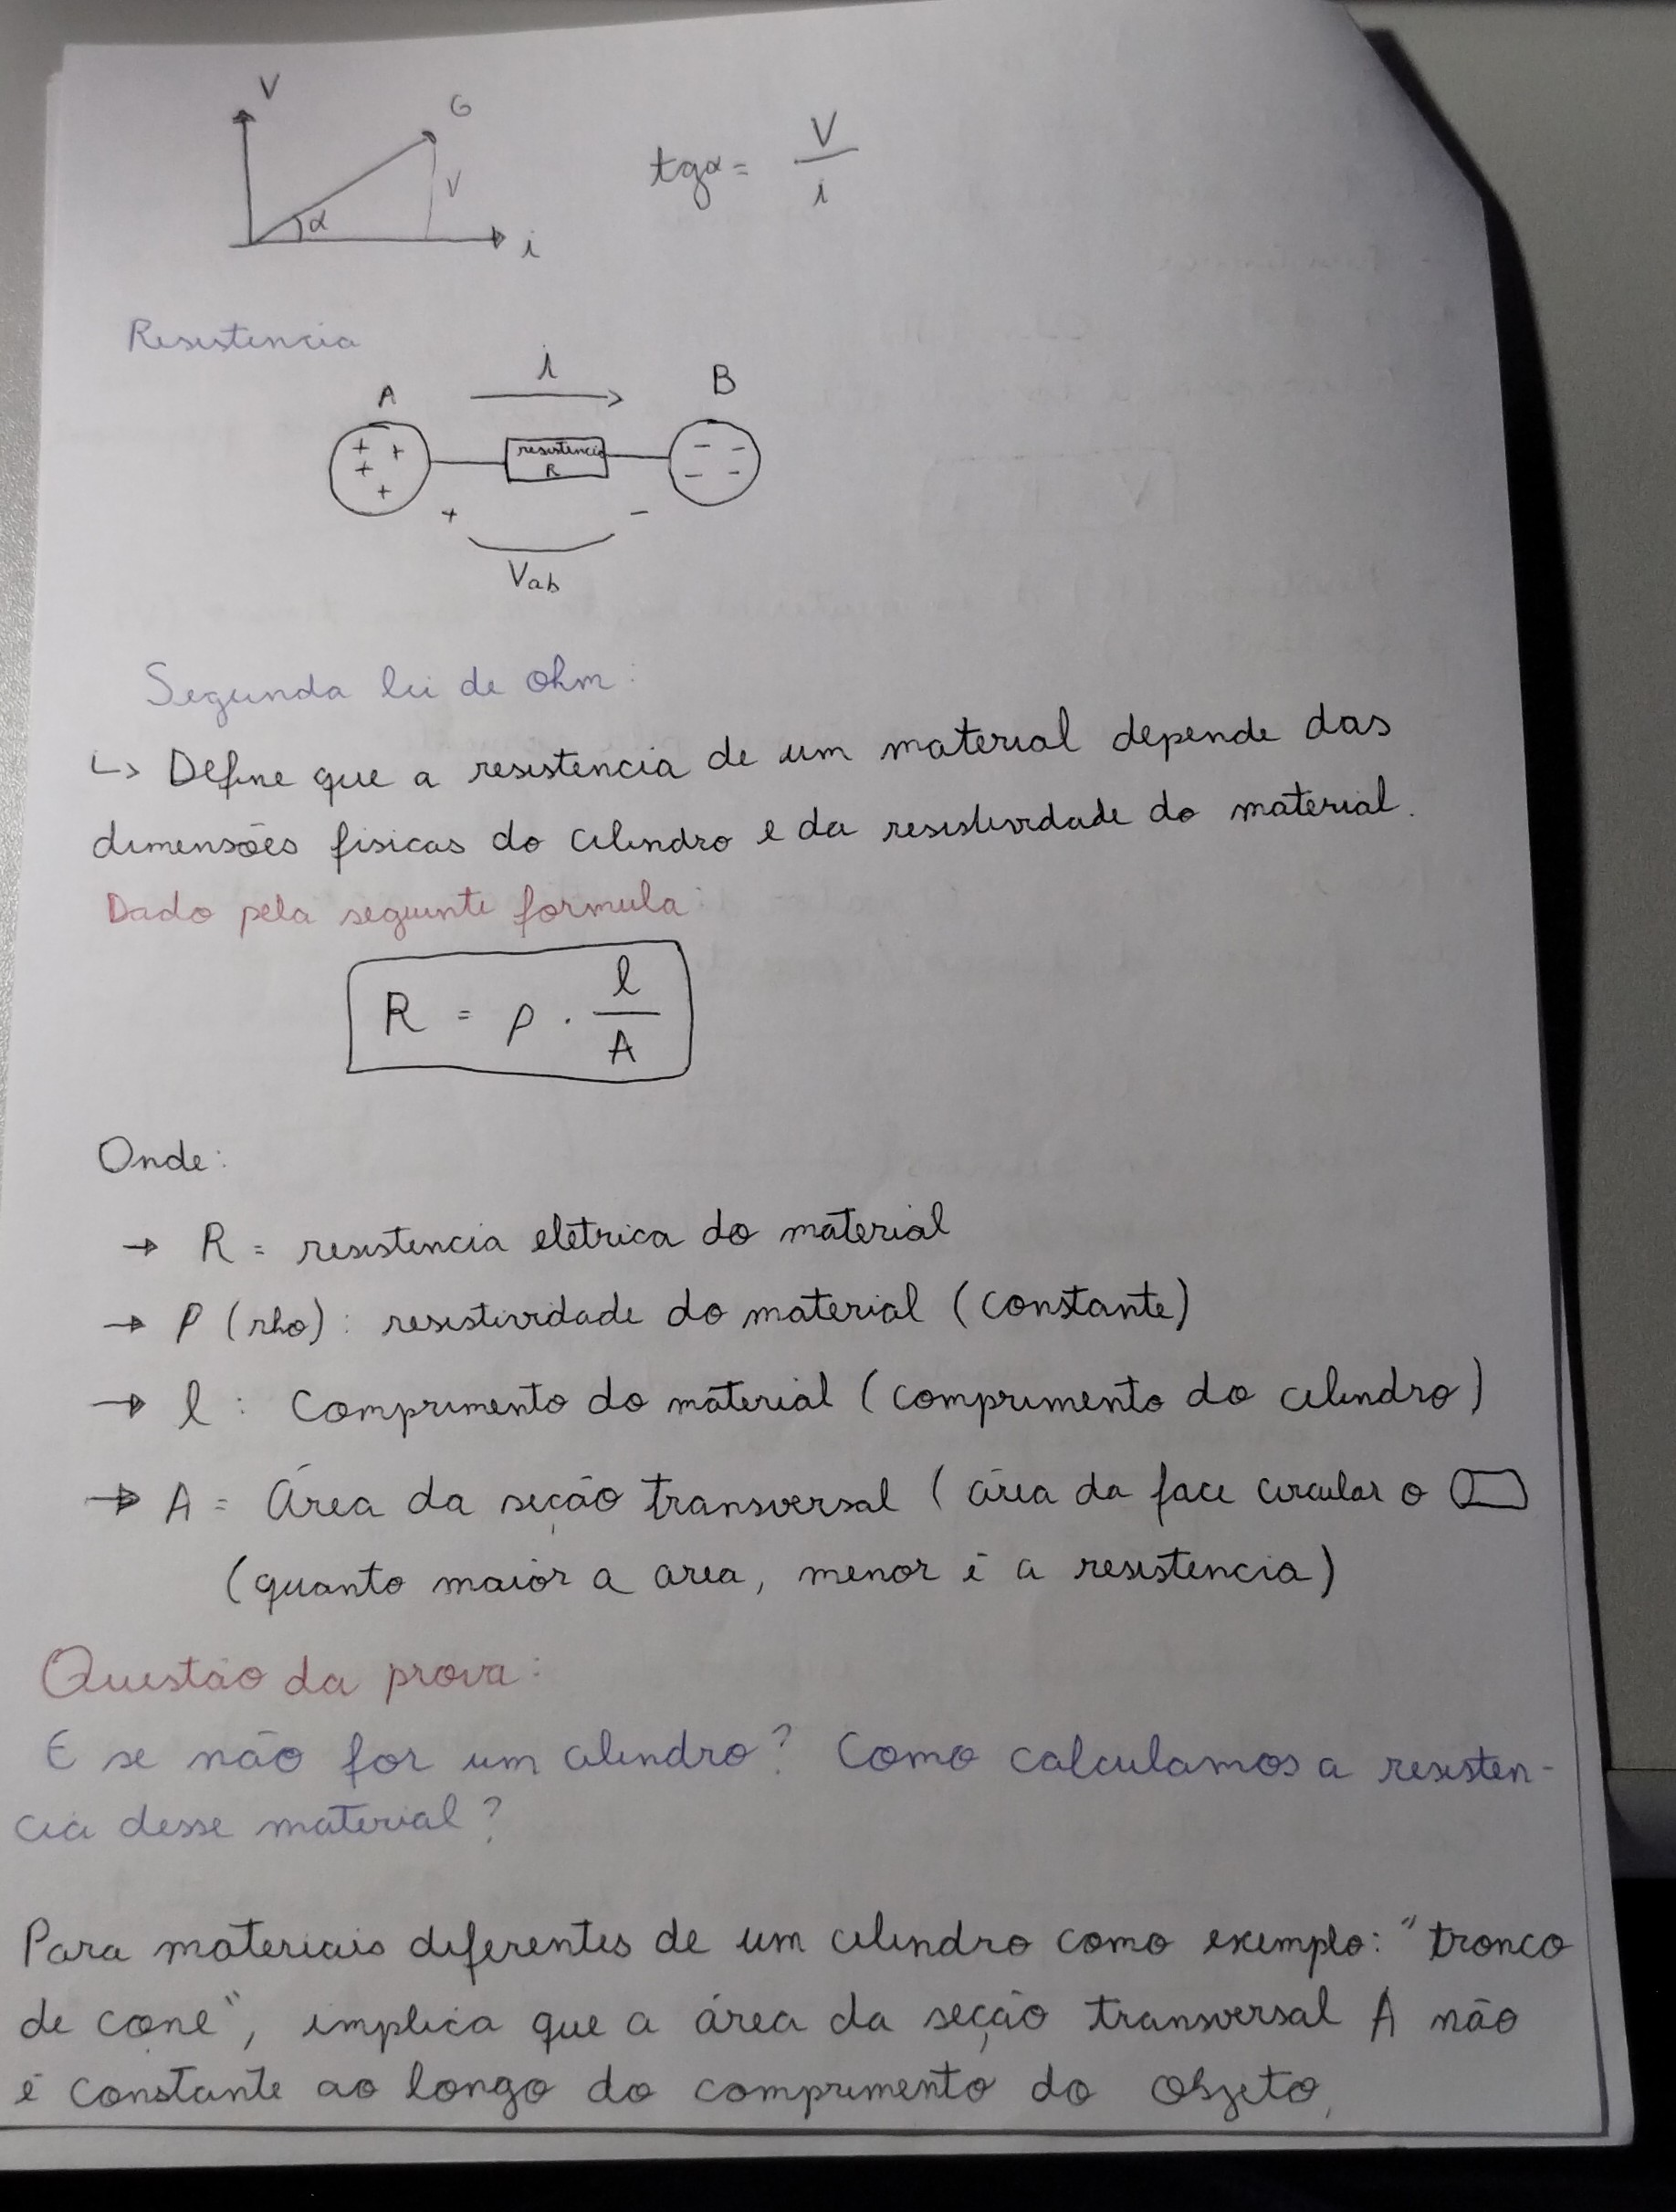 V
G
V
α
i
tgα = V/i
Resistencia
i
A
B
+ + + +
resistencia
R
- - - -
+ -
Vab
Segunda lei de ohm:
↳ Define que a resistencia de um material depende das
dimensões fisicas do cilindro e da resistividade do material.
Dado pela seguinte formula:
R = ρ . l/A
Onde:
→ R = resistencia eletrica do material
→ ρ (rho): resistividade do material (constante)
→ l : Comprimento do material (comprimento do cilindro)
→ A = Área da seção transversal (área da face circular o
(quanto maior a area, menor é a resistencia)
Questão da prova:
E se não for um cilindro? Como calculamos a resisten-
cia desse material?
Para materiais diferentes de um cilindro como exemplo: "tronco
de cone", implica que a área da seção transversal A não
é constante ao longo do comprimento do objeto,